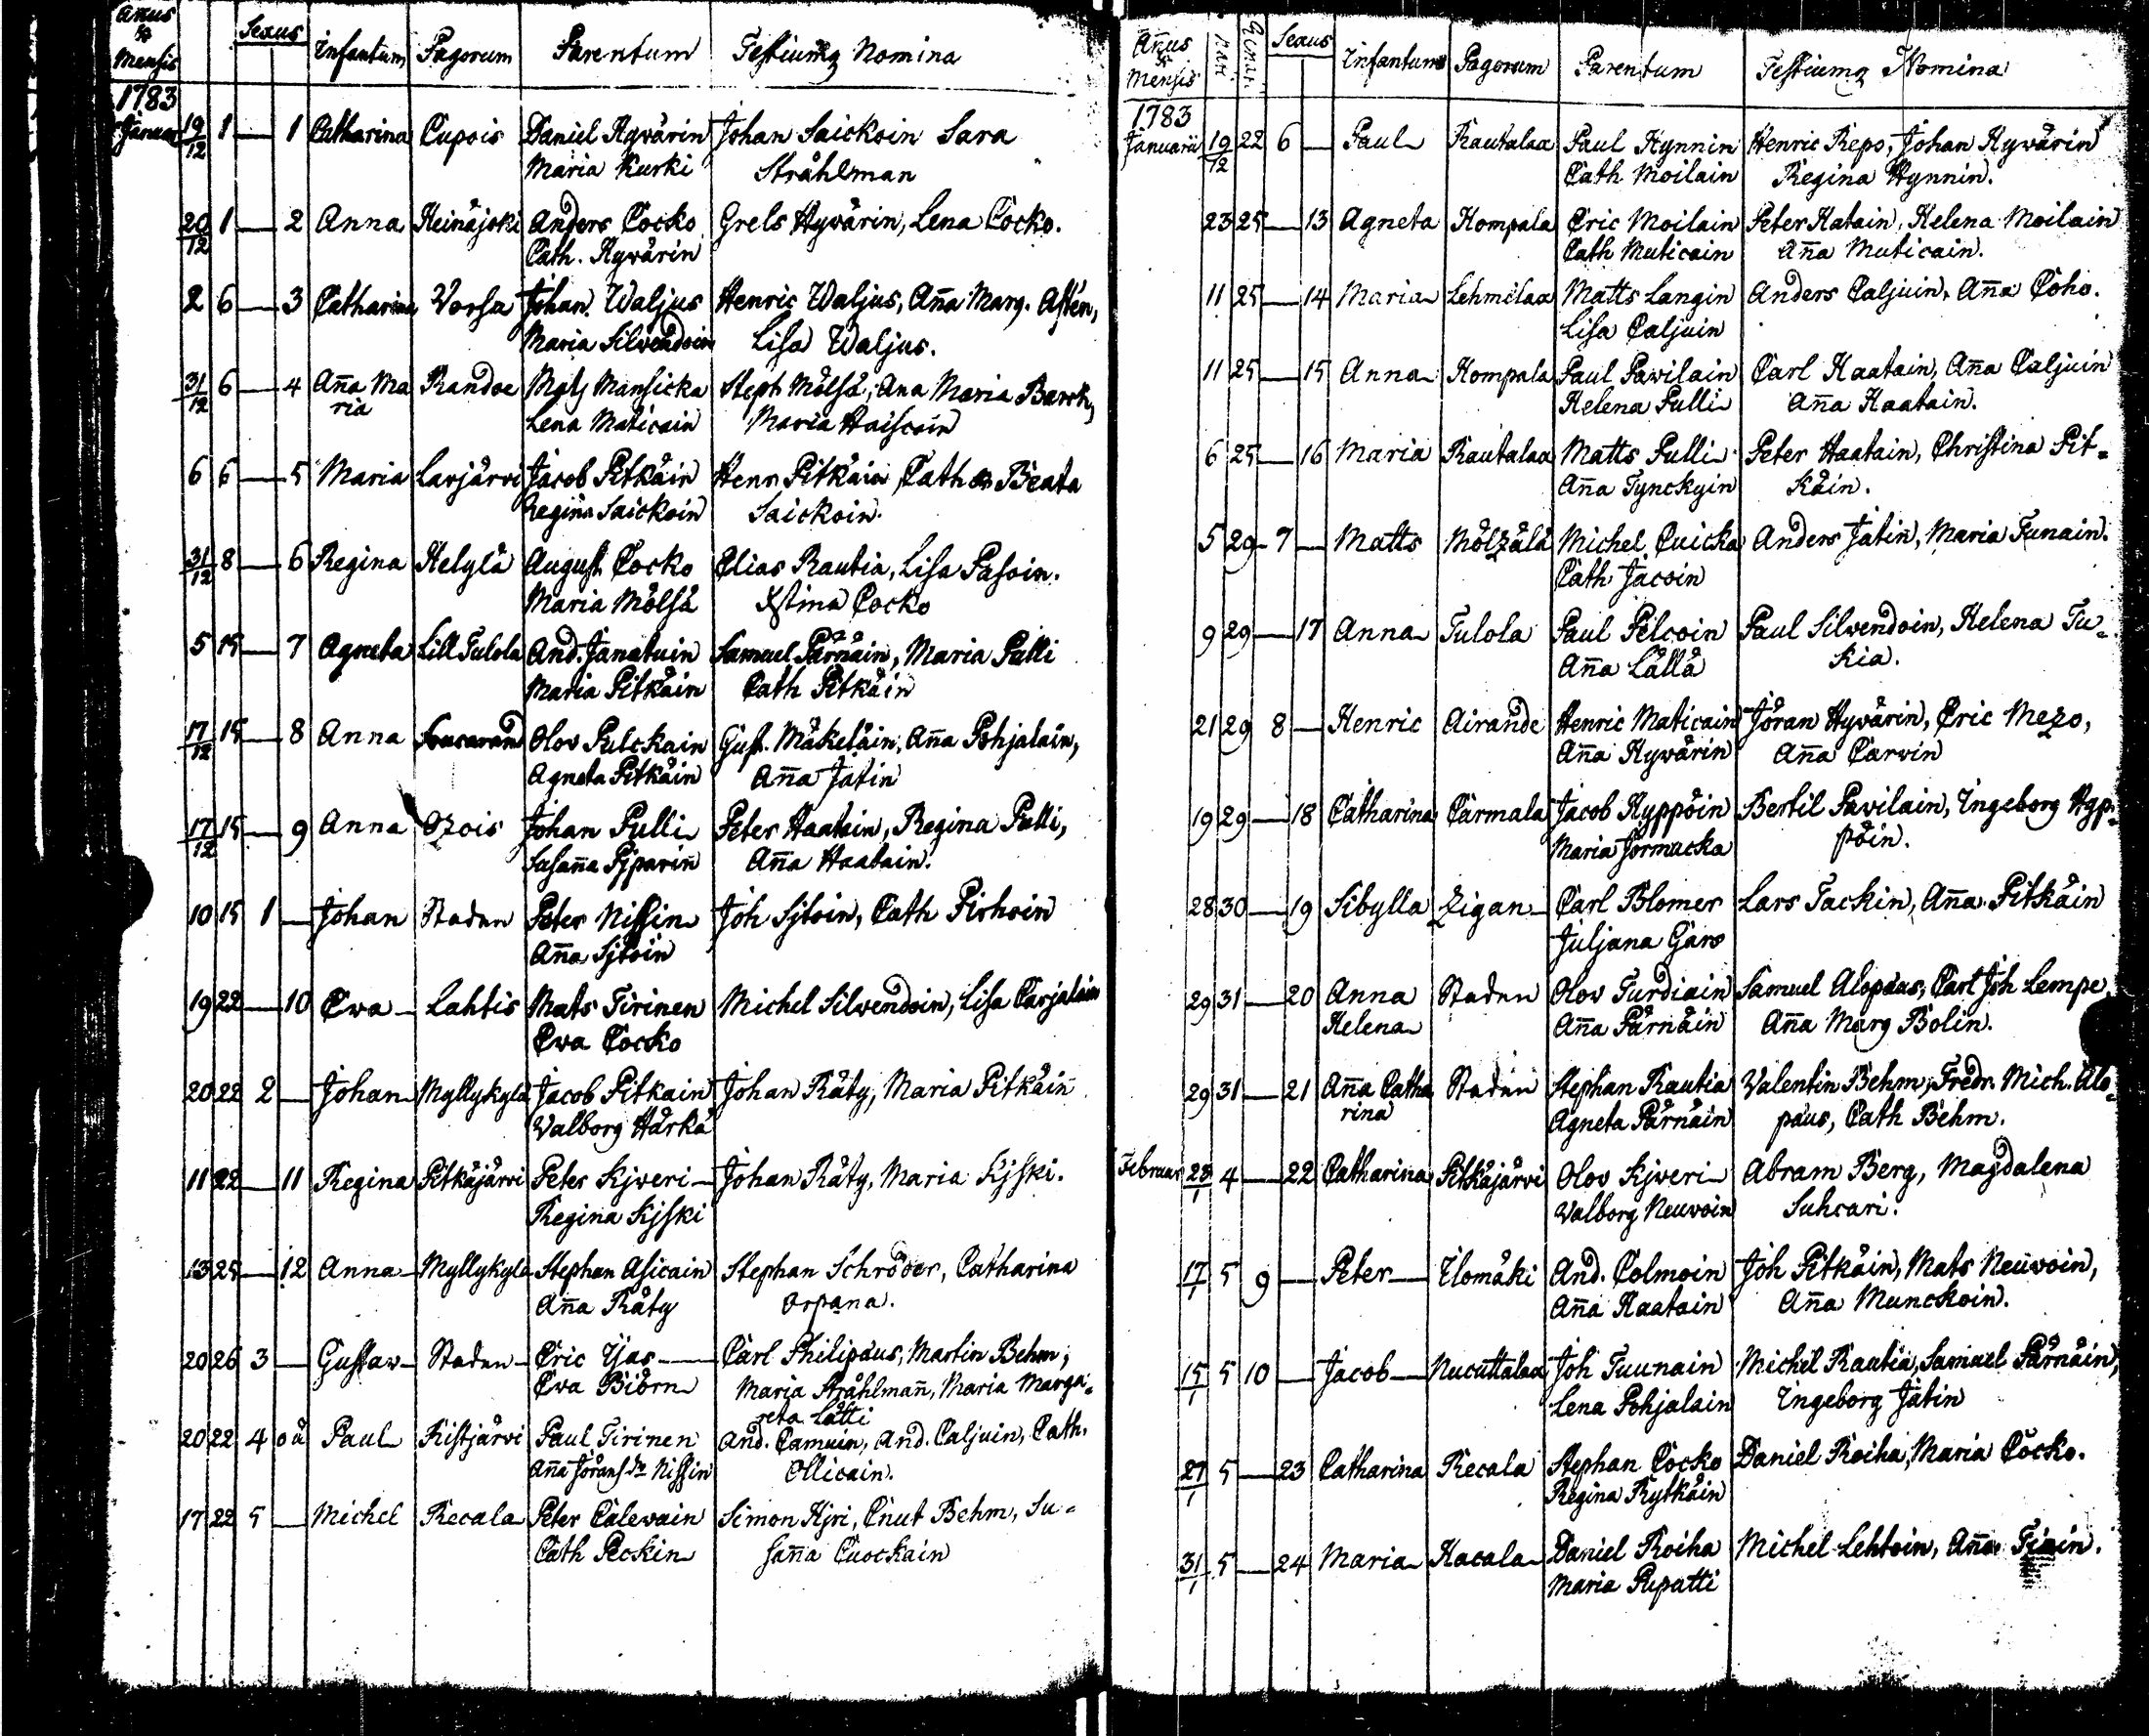 Añus & Mensis Sexus Infantum Pagorum Parentum Testiumq Nomina
1783
Januar 19/12 1 — 1 Catharina Cupois Daniel Hyvärin Johan Saickoin Sara
Maria Kurki Stråhlman
20/12 1 — 2 Anna Heinäjoki Anders Cocko Grels Hyvärin, Lena Cocko.
Cath. Hyvärin
2 6 — 3 Catharina Vorsu Johan Waljus Henric Waljus, Aña Marg. Astén,
Maria Silvendoin Lisa Waljus.
31/12 6 — 4 Aña Ma Randoe Mats Mansicka Steph Mölsä, Ana Maria Barck,
ria Lena Maticain Maria Haiscain
6 6 — 5 Maria Lavjärvi Jacob Pitkäin Henr Pitkäin, Cath Beata
Regina Saickoin Saickoin.
31/12 8 — 6 Regina Helylä August Cocko Elias Rautia, Lisa Pasoin.
Maria Mölsä Xstina Cocko
5 15 — 7 Agneta Lill Tulola And. Janatuin Samuel Pärnäin, Maria Pulli
Maria Pitkäin Cath Pitkäin
17/12 15 — 8 Anna Olov Pulckain Gust. Mäkeläin, Aña Pohjalain,
Agneta Pitkäin Aña Jätin
17/12 15 — 9 Anna Ozois Johan Pulli Peter Haatain, Regina Pulli,
Susaña Pjparin Aña Haatain.
10 15 1 — Johan Staden Peter Nissin Joh Sjtoin, Cath Pirhoin
Aña Sjtoin
19 22 — 10 Eva Lahtis Mats Tirinen Michel Silvendoin, Lisa Carjalain
Eva Cocko
20 22 2 — Johan Myllykylä Jacob Pitkain Johan Räty, Maria Pitkäin
Valborg Härkä
11 22 — 11 Regina Pitkäjärvi Peter Kjveri Johan Räty, Maria Kjski.
Regina Kjski
13 25 — 12 Anna Myllykylä Stephan Asicain Stephan Schröder, Catharina
Aña Räty Orpana.
20 26 3 — Gustav Staden Eric Yjas Carl Philipæus, Martin Behm,
Eva Biörn Maria Stråhlmañ, Maria Marga-
reta Lätti
20 22 4 oä Paul Kistjärvi Paul Tirinen And. Camuin, And. Caljuin, Cath.
Aña Jöransdr Nissin Ollicain.
17 22 5 — Michel Recala Peter Calewain Simon Hjri, Cnut Behm, Su-
Cath Peckin saña Cuockain
Añus & Mensis Sexus Infantum Pagorum Parentum Testiumq Nomina
1783
Januarii 19/12 22 6 — Paul Rautalax Paul Hynnin Henric Repo, Johan Hyvärin
Cath Moilain Regina Hynnin.
23 25 — 13 Agneta Kompala Eric Moilain Peter Hatain, Helena Moilain
Cath Muticain Aña Muticain.
11 25 — 14 Maria Lehmilax Matts Langin Anders Caljuin, Aña Coho.
Lisa Caljuin
11 25 — 15 Anna Kompala Paul Pavilain Carl Haatain, Aña Caljuin
Helena Pulli Aña Haatain.
6 25 — 16 Maria Rautalax Matts Pulli Peter Haatain, Christina Pit-
Aña Tynckyin käin.
5 29 7 — Matts Mölzälä Michel Cuicka Anders Jätin, Maria Tunain.
Cath Jacoin
9 29 — 17 Anna Tulola Paul Pelcoin Paul Silvendoin, Helena Tu-
Aña Lällä kia.
21 29 8 — Henric Airande Henric Maticain Jöran Hyvärin, Eric Mezo,
Aña Hyvärin Aña Carvin
19 29 — 18 Catharina Carmala Jacob Hyppöin Bertil Pavilain, Ingeborg Hyp-
Maria Jormacka pöin.
28 30 — 19 Sibylla Zigan Carl Blomer Lars Tackin, Aña Pitkäin
Juljana Gars
29 31 — 20 Anna Staden Olov Turdiain Samuel Alopæus, Carl Joh Lempe,
Helena Aña Pärnäin Aña Marg Bolin.
29 31 — 21 Aña Catha Staden Stephan Rautia Valentin Behm, Fredr. Mich. Alo-
rina Agneta Pärnäin pæus, Cath Behm.
Februar 28/1 4 — 22 Catharina Pitkäjärvi Olov Kjveri Abram Berg, Magdalena
Valborg Neuvoin Suhcari.
17/1 5 9 — Peter Ilomäki And. Colmoin Joh Pitkäin, Mats Neuvoin,
Aña Haatain Aña Munckoin.
15/1 5 10 — Jacob Nucuttalax Joh Tuunain Michel Rautia, Samuel Pärnäin,
Lena Pohjalain Ingeborg Jätin
27/1 5 — 23 Catharina Recala Stephan Cocko Daniel Roiha, Maria Cocko.
Regina Rytkäin
31/1 5 — 24 Maria Hacala Daniel Roiha Michel Lehtoin, Aña
Maria Pupatti